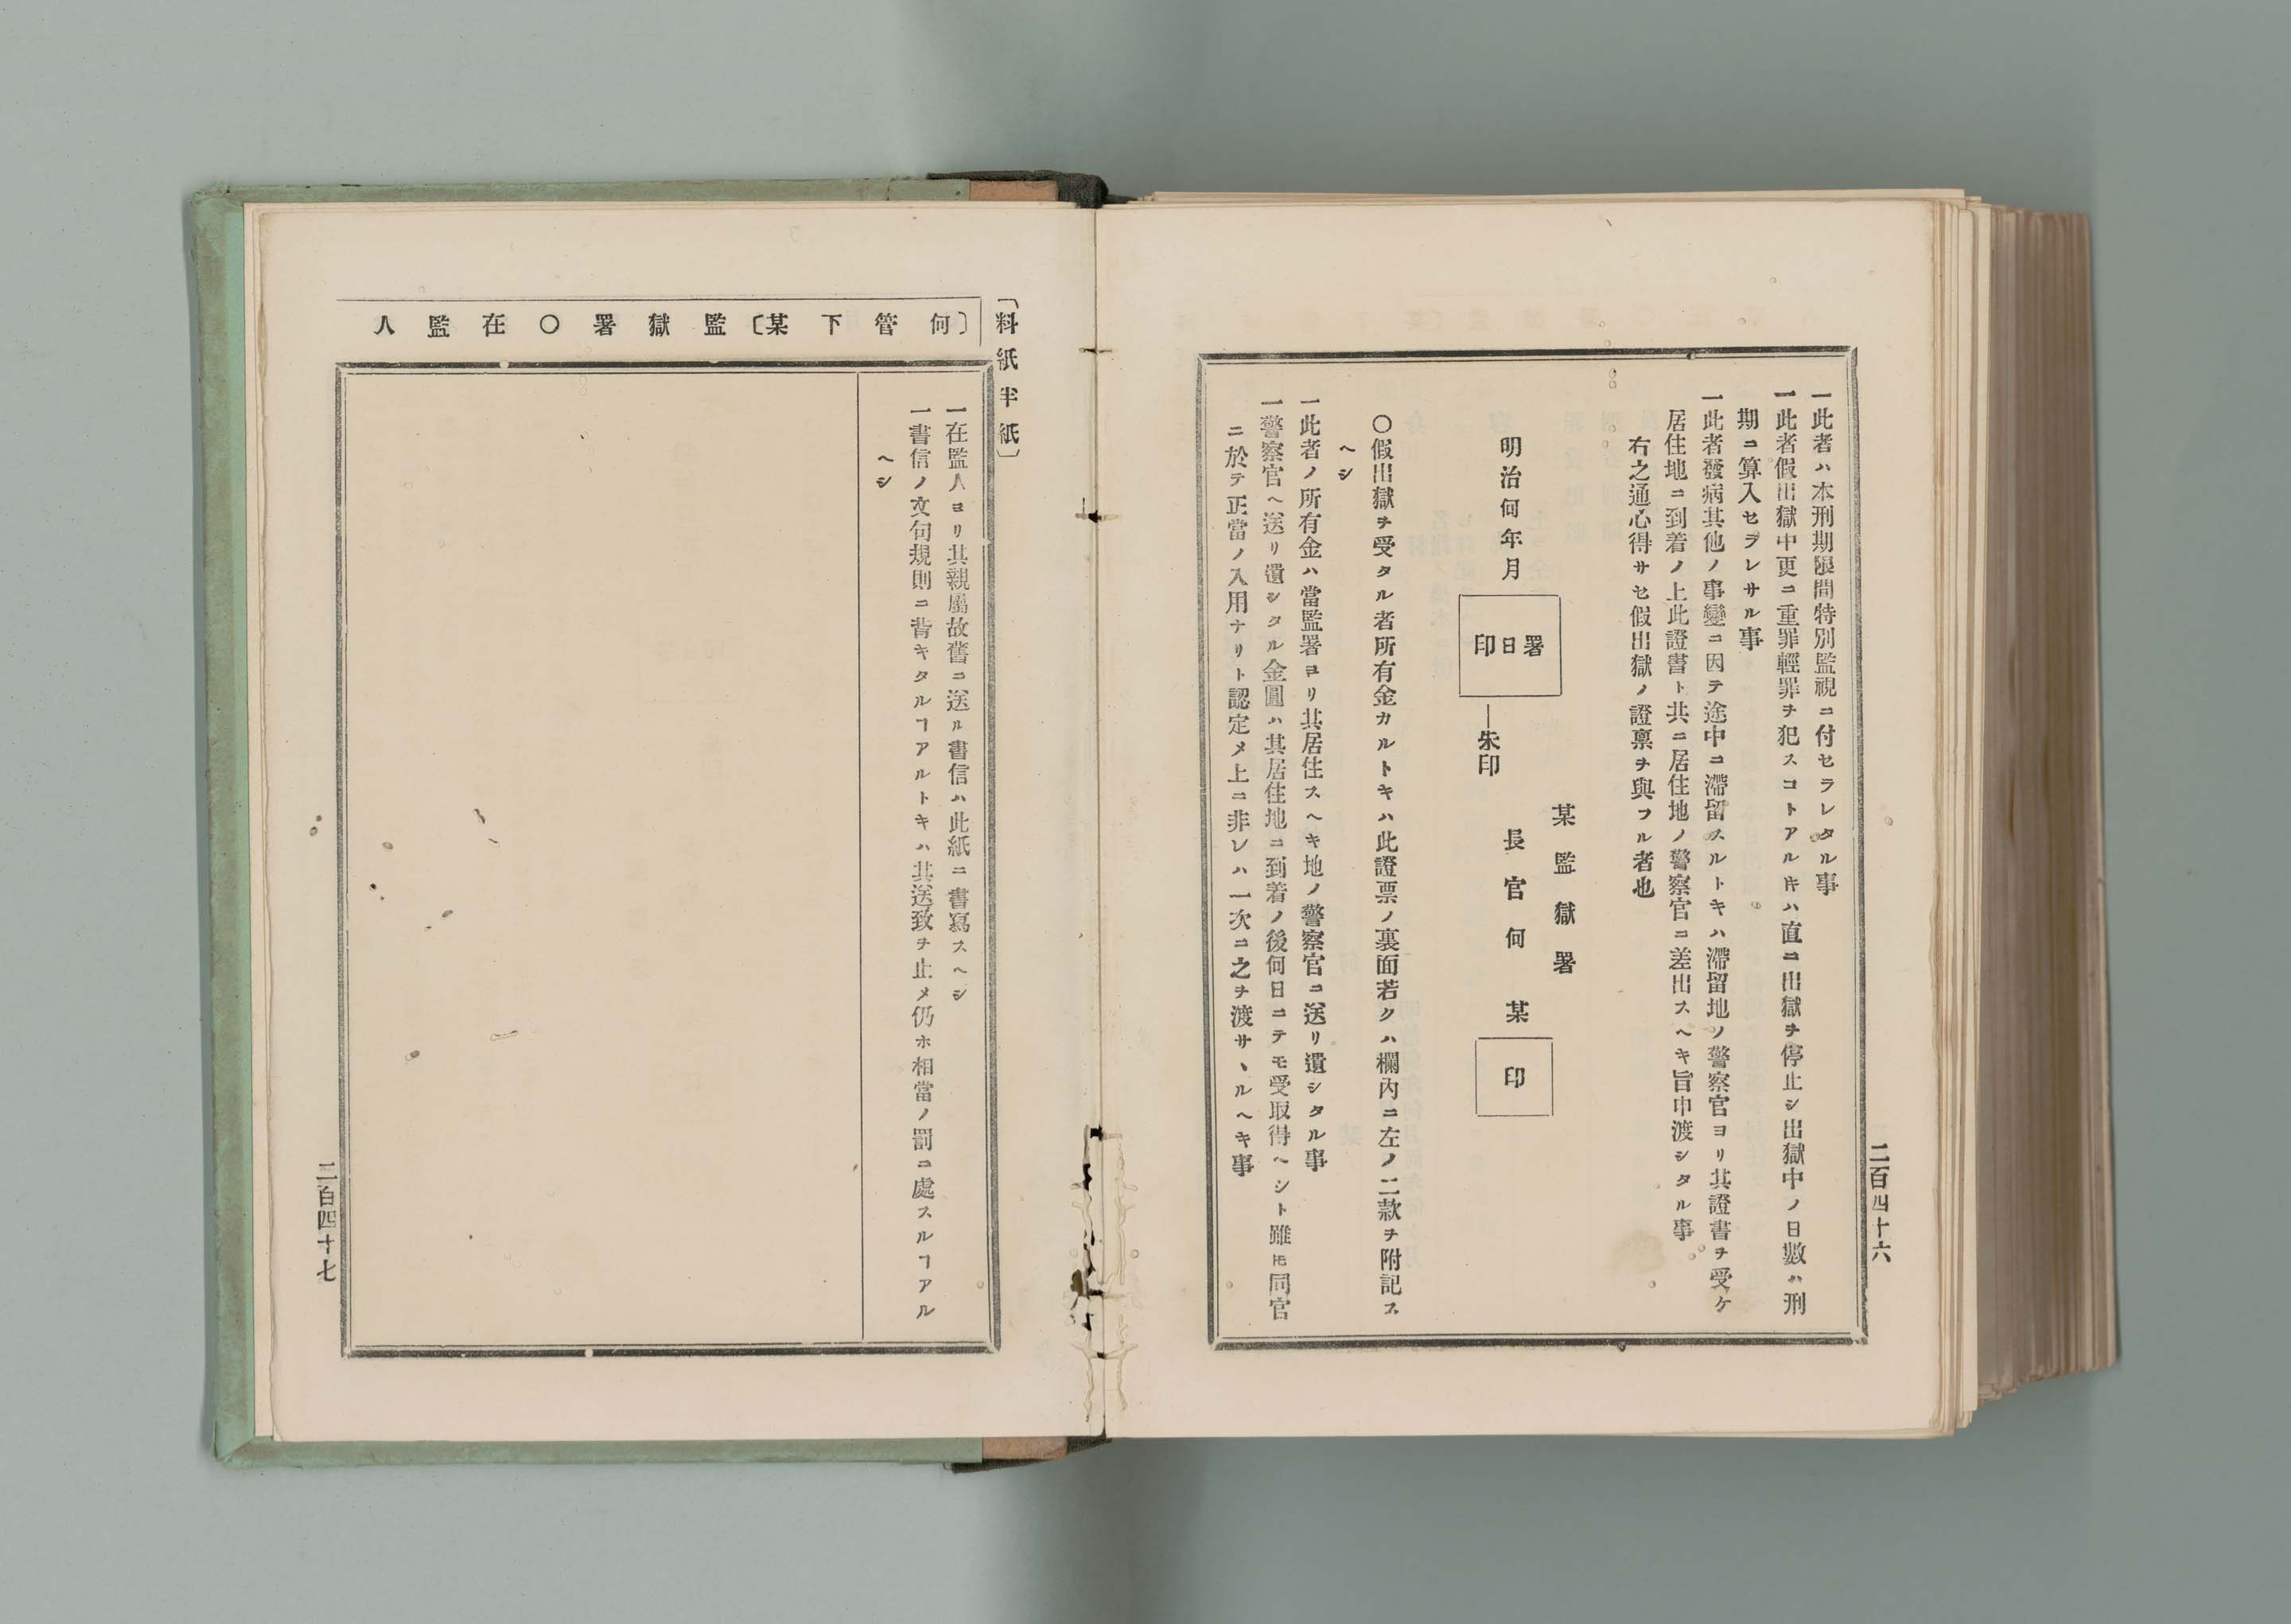 一此者ハ本刑期限間特別監視ニ付セラレタル事
一此者假出獄中更ニ重罪輕罪ヲ犯スコトアルㇳキハ直ニ出獄ヲ停止シ出獄中ノ日數ハ刑
期ニ算入セラレサル事
一此者發病其他ノ事變ニ因テ途中ニ滯留スルトキハ滯留地ノ警察官ヨリ其證書ヲ受ケ
居住地ニ到着ノ上此證書ト共ニ居住地ノ警察官ニ差出スヘキ旨申渡シタル事
右之通心得サセ假出獄ノ證票ヲ與フル者也
某監獄署
長官何某 印
明治何年月 署日印
朱印
〇假出獄ヲ受タル者所有金カルトキハ此證票ノ裏面若クハ欄內ニ左ノ二款ヲ附記ス
ヘシ
一此者ノ所有金ハ當監署ヨリ其居住スヘキ地ノ警察官ニ送リ遺シタル事
一警察官ヘ送リ遺シタル金圓ハ其居住地ニ到着ノ後何日ニテモ受取得ヘシト雖𪜈同官
ニ於テ正當ノ入用ナリト認定メ上ニ非レハ一次ニ之ヲ渡サヽルヘキ事
二百四十六
〔料紙半紙〕
〔何管下某〕監獄署〇在監人
一在監人ヨリ其親屬故舊ニ送ル書信ハ此紙ニ書寫スヘシ
一書信ノ文句規則ニ背キタルヿアルトキハ其送致ヲ止メ仍ホ相當ノ罰ニ處スルヿアル
ヘシ
二百四十七